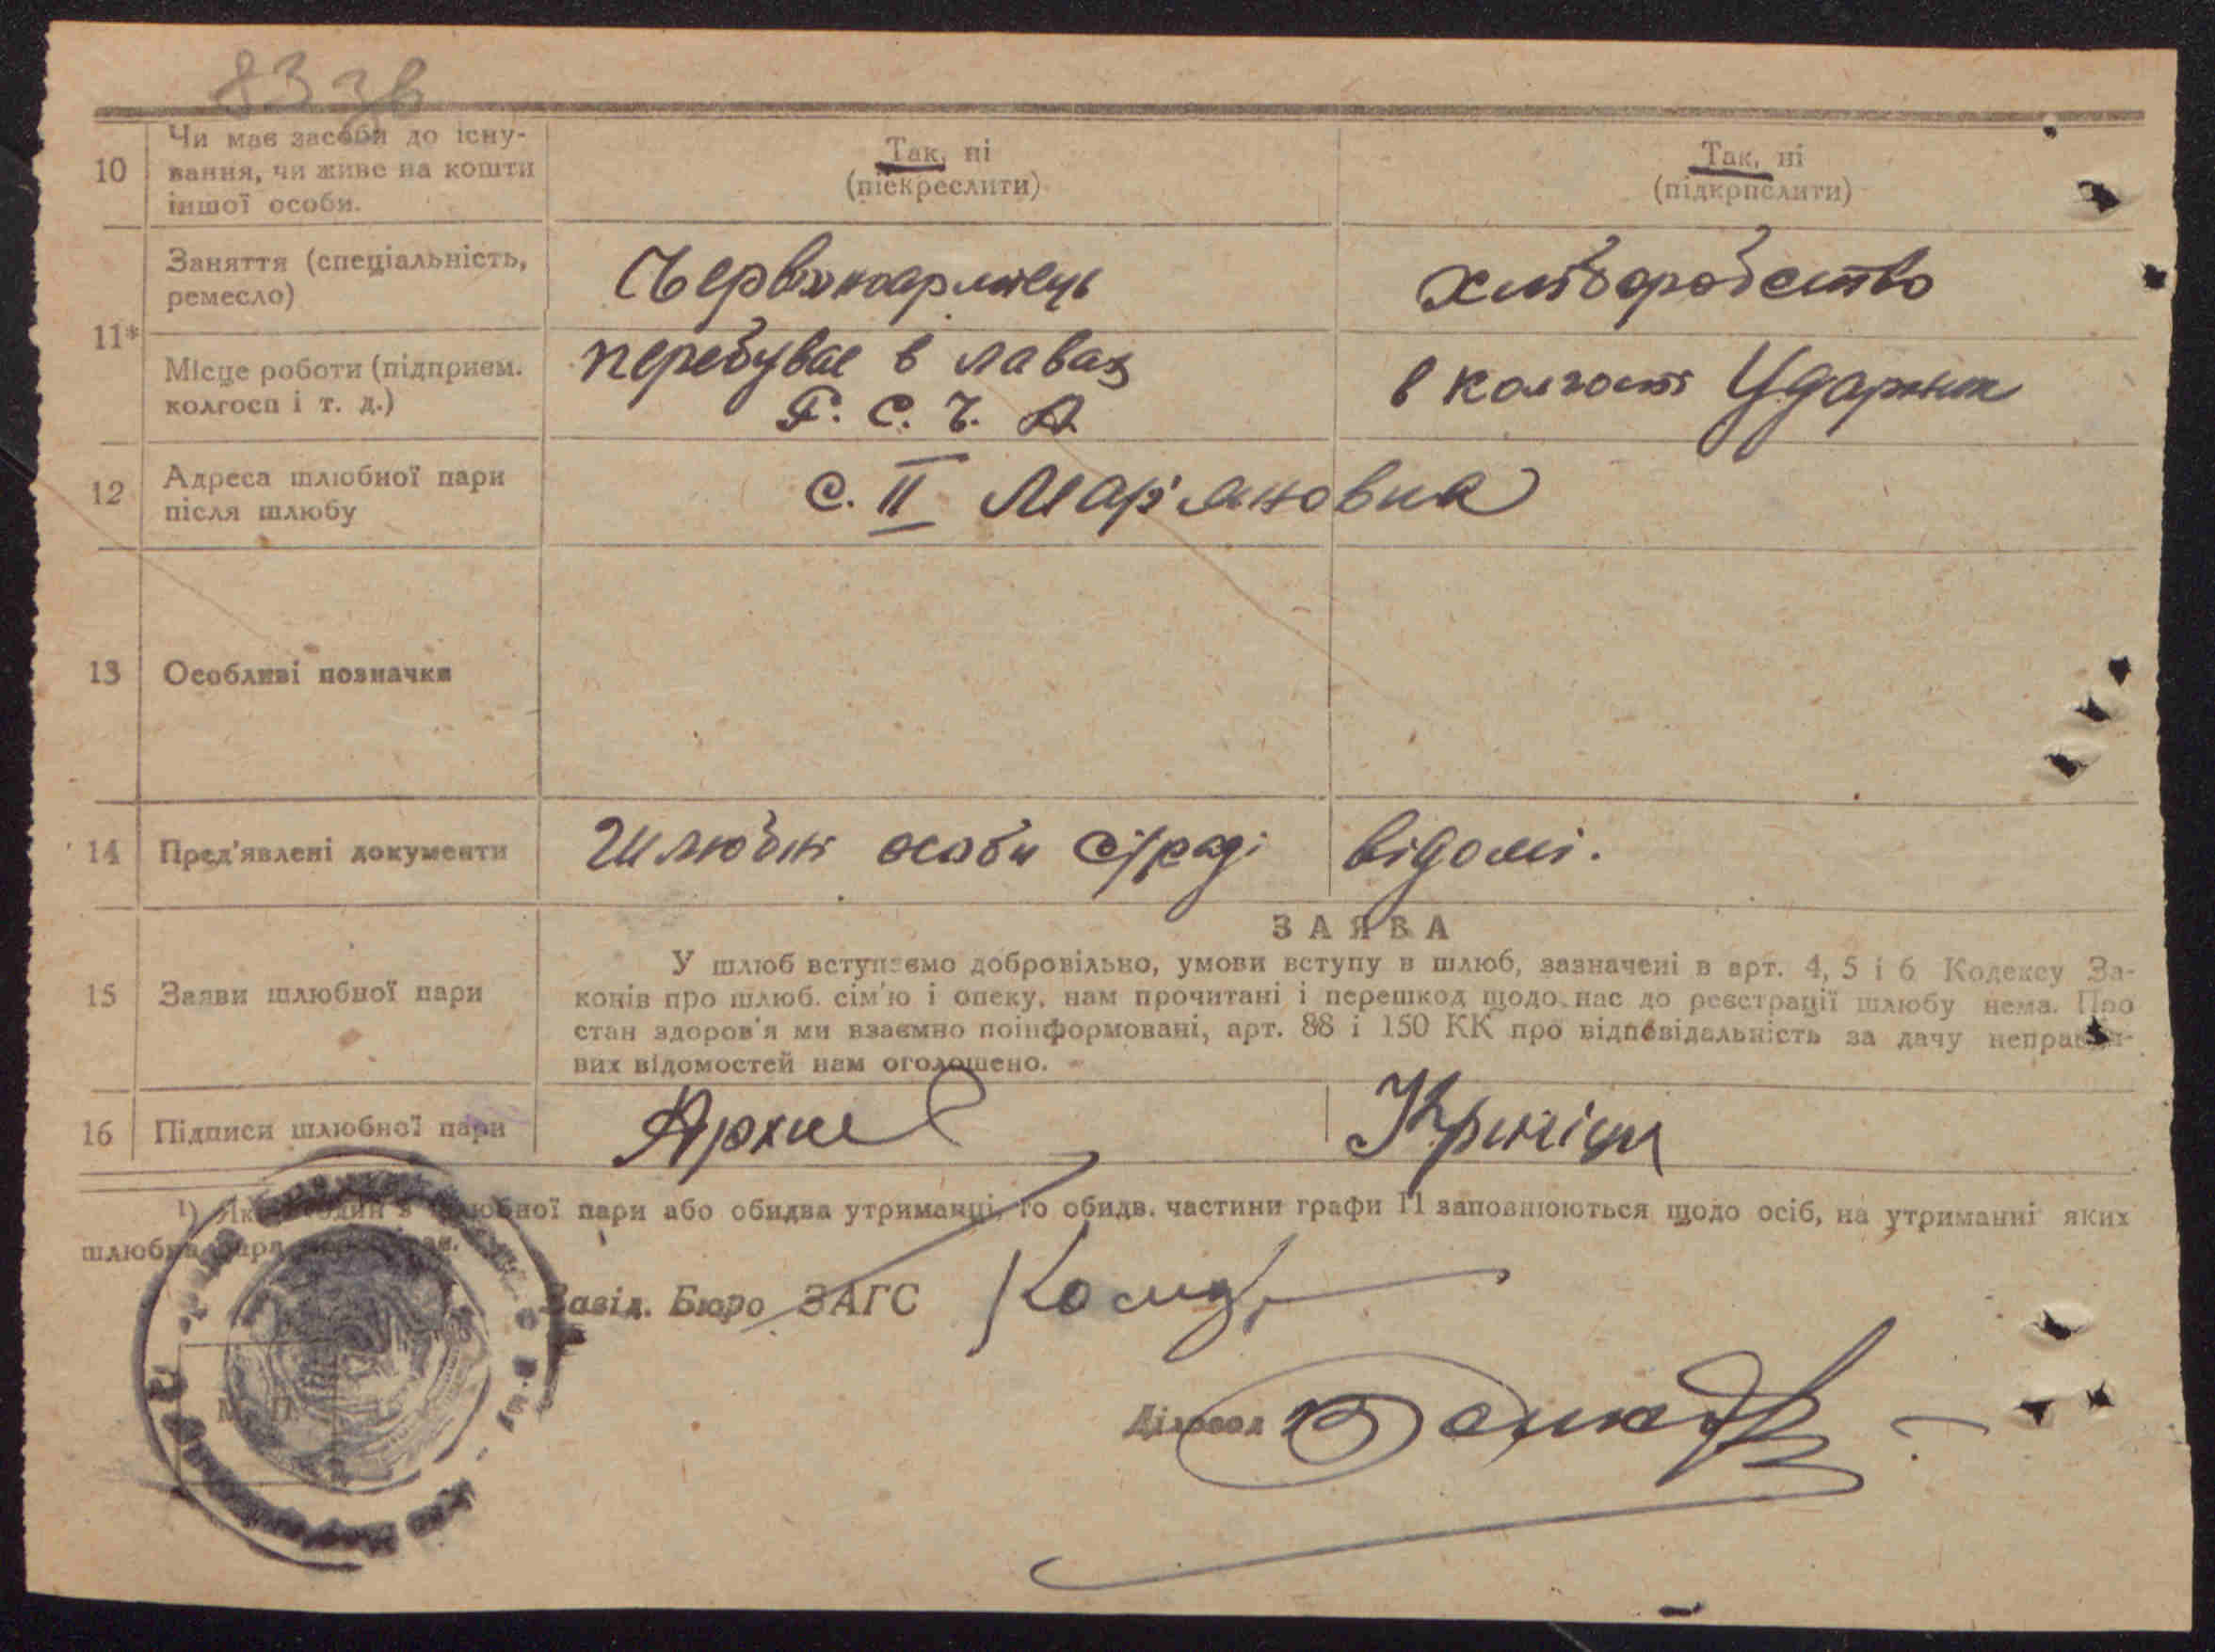 83 зв
10
Чи має засоби до існу-
вання, чи живе на кошти
іншої особи.
Так, ні
(піекреслити)
Так, ні
(підкрпслити)
11*
Заняття (спеціальність,
ремесло)
Червоноармієць
хліборобство
Місце роботи (підприєм.
колгосп і т. д.)
перебуває в лавах
Р. С. Ч. А.
в колгоспі Ударник
12
Адреса шлюбної пари
після шлюбу
с. II Мар'яновка
13
Особливі позначки
14
Пред'явлені документи
Шлюбні особи с/раді відомі.
15
Заяви шлюбної пари
ЗАЯВА
У шлюб вступаємо добровільно, умови вступу в шлюб, зазначені в арт. 4, 5 і 6 Кодексу За-
конів про шлюб. сім'ю і опеку, нам прочитані і перешкод щодо нас до реєстрації шлюбу нема. Про
стан здоров'я ми взаємно поінформовані, арт. 88 і 150 КК про відповідальність за дачу неправди-
вих відомостей нам оголошено.
16
Підписи шлюбної пари
1) Якщо один з шлюбної пари або обидва утриманці, то обидв. частини графи 11 заповнюються щодо осіб, на утриманні яких
шлюбна пара
Завід. Бюро ЗАГС
М. П.
Діловод